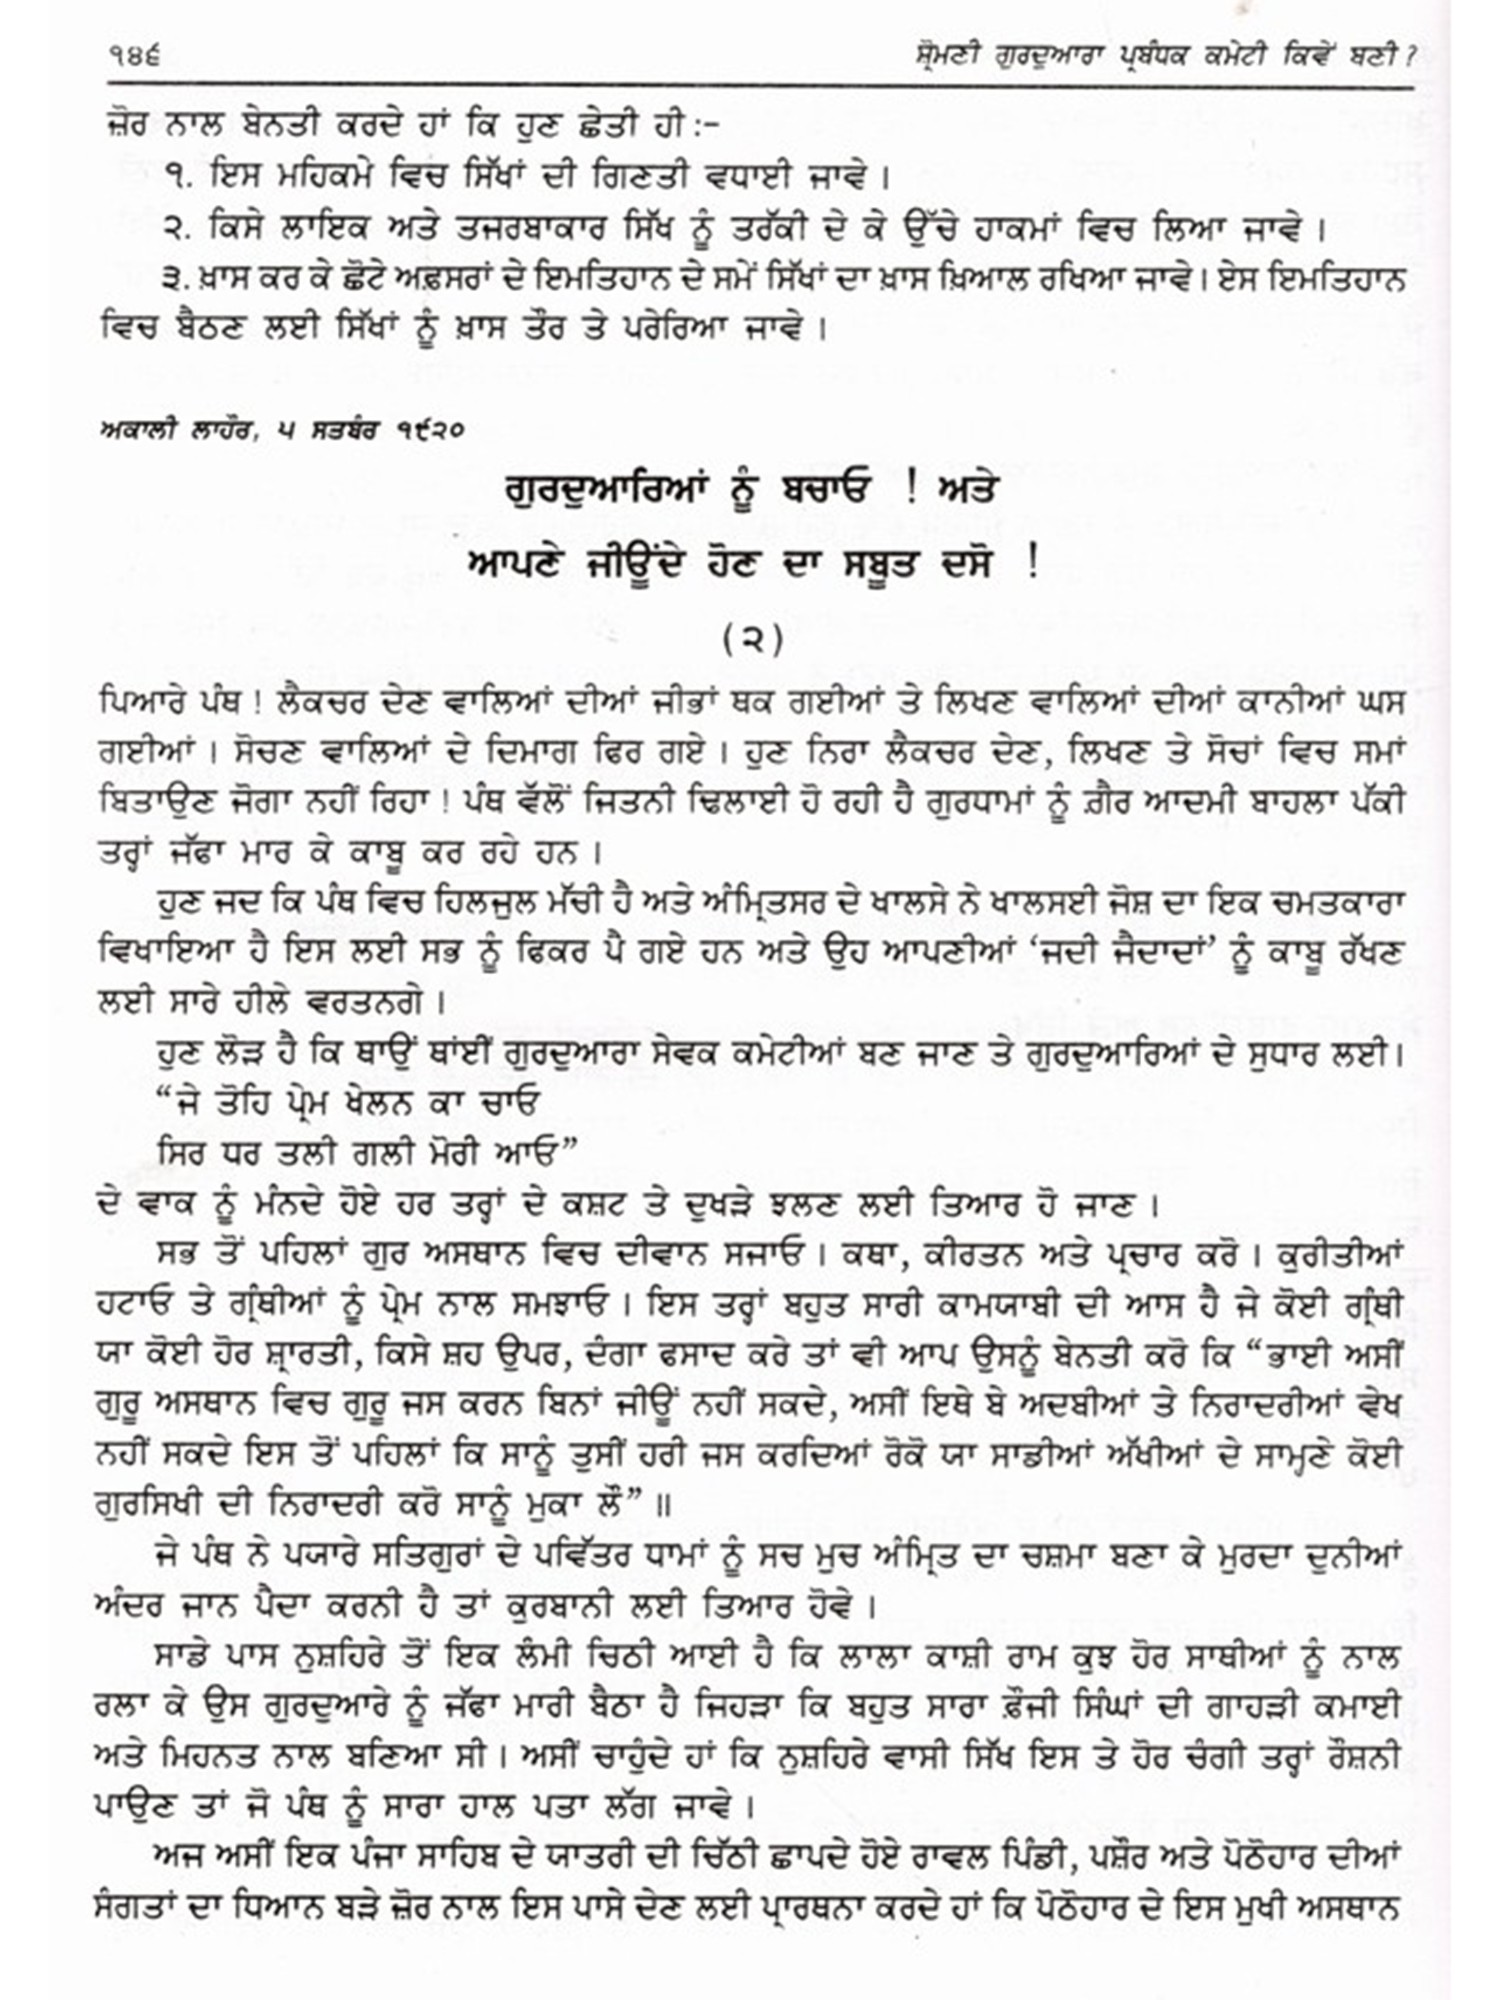 ੧੪੬ ਸ਼੍ਰੋਮਣੀ ਗੁਰਦੁਆਰਾ ਪ੍ਰਬੰਧਕ ਕਮੇਟੀ ਕਿਵੇਂ ਬਣੀ ?
ਜ਼ੋਰ ਨਾਲ ਬੇਨਤੀ ਕਰਦੇ ਹਾਂ ਕਿ ਹੁਣ ਛੇਤੀ ਹੀ :-
੧. ਇਸ ਮਹਿਕਮੇ ਵਿਚ ਸਿੱਖਾਂ ਦੀ ਗਿਣਤੀ ਵਧਾਈ ਜਾਵੇ ।
੨. ਕਿਸੇ ਲਾਇਕ ਅਤੇ ਤਜਰਬਾਕਾਰ ਸਿੱਖ ਨੂੰ ਤਰੱਕੀ ਦੇ ਕੇ ਉੱਚੇ ਹਾਕਮਾਂ ਵਿਚ ਲਿਆ ਜਾਵੇ ।
੩. ਖ਼ਾਸ ਕਰ ਕੇ ਛੋਟੇ ਅਫ਼ਸਰਾਂ ਦੇ ਇਮਤਿਹਾਨ ਦੇ ਸਮੇਂ ਸਿੱਖਾਂ ਦਾ ਖ਼ਾਸ ਖ਼ਿਆਲ ਰਖਿਆ ਜਾਵੇ। ਏਸ ਇਮਤਿਹਾਨ
ਵਿਚ ਬੈਠਣ ਲਈ ਸਿੱਖਾਂ ਨੂੰ ਖ਼ਾਸ ਤੌਰ ਤੇ ਪਰੇਰਿਆ ਜਾਵੇ ।
ਅਕਾਲੀ ਲਾਹੌਰ, ੫ ਸਤਬੰਰ ੧੯੨੦
ਗੁਰਦੁਆਰਿਆਂ ਨੂੰ ਬਚਾਓ ! ਅਤੇ
ਆਪਣੇ ਜੀਊਂਦੇ ਹੋਣ ਦਾ ਸਬੂਤ ਦਸੋ !
(੨)
ਪਿਆਰੇ ਪੰਥ ! ਲੈਕਚਰ ਦੇਣ ਵਾਲਿਆਂ ਦੀਆਂ ਜੀਭਾਂ ਥਕ ਗਈਆਂ ਤੇ ਲਿਖਣ ਵਾਲਿਆਂ ਦੀਆਂ ਕਾਨੀਆਂ ਘਸ
ਗਈਆਂ । ਸੋਚਣ ਵਾਲਿਆਂ ਦੇ ਦਿਮਾਗ ਫਿਰ ਗਏ । ਹੁਣ ਨਿਰਾ ਲੈਕਚਰ ਦੇਣ, ਲਿਖਣ ਤੇ ਸੋਚਾਂ ਵਿਚ ਸਮਾਂ
ਬਿਤਾਉਣ ਜੋਗਾ ਨਹੀਂ ਰਿਹਾ ! ਪੰਥ ਵੱਲੋਂ ਜਿਤਨੀ ਢਿਲਾਈ ਹੋ ਰਹੀ ਹੈ ਗੁਰਧਾਮਾਂ ਨੂੰ ਗ਼ੈਰ ਆਦਮੀ ਬਾਹਲਾ ਪੱਕੀ
ਤਰ੍ਹਾਂ ਜੱਫਾ ਮਾਰ ਕੇ ਕਾਬੂ ਕਰ ਰਹੇ ਹਨ ।
ਹੁਣ ਜਦ ਕਿ ਪੰਥ ਵਿਚ ਹਿਲਜੁਲ ਮੱਚੀ ਹੈ ਅਤੇ ਅੰਮ੍ਰਿਤਸਰ ਦੇ ਖਾਲਸੇ ਨੇ ਖਾਲਸਈ ਜੋਸ਼ ਦਾ ਇਕ ਚਮਤਕਾਰਾ
ਵਿਖਾਇਆ ਹੈ ਇਸ ਲਈ ਸਭ ਨੂੰ ਫਿਕਰ ਪੈ ਗਏ ਹਨ ਅਤੇ ਉਹ ਆਪਣੀਆਂ ‘ਜਦੀ ਜੈਦਾਦਾਂ’ ਨੂੰ ਕਾਬੂ ਰੱਖਣ
ਲਈ ਸਾਰੇ ਹੀਲੇ ਵਰਤਨਗੇ ।
ਹੁਣ ਲੋੜ ਹੈ ਕਿ ਥਾਉਂ ਥਾਂਈਂ ਗੁਰਦੁਆਰਾ ਸੇਵਕ ਕਮੇਟੀਆਂ ਬਣ ਜਾਣ ਤੇ ਗੁਰਦੁਆਰਿਆਂ ਦੇ ਸੁਧਾਰ ਲਈ।
“ਜੇ ਤੋਹਿ ਪ੍ਰੇਮ ਖੇਲਨ ਕਾ ਚਾਓ
ਸਿਰ ਧਰ ਤਲੀ ਗਲੀ ਮੋਰੀ ਆਓ”
ਦੇ ਵਾਕ ਨੂੰ ਮੰਨਦੇ ਹੋਏ ਹਰ ਤਰ੍ਹਾਂ ਦੇ ਕਸ਼ਟ ਤੇ ਦੁਖੜੇ ਝਲਣ ਲਈ ਤਿਆਰ ਹੋ ਜਾਣ ।
ਸਭ ਤੋਂ ਪਹਿਲਾਂ ਗੁਰ ਅਸਥਾਨ ਵਿਚ ਦੀਵਾਨ ਸਜਾਓ । ਕਥਾ, ਕੀਰਤਨ ਅਤੇ ਪ੍ਰਚਾਰ ਕਰੋ । ਕੁਰੀਤੀਆਂ
ਹਟਾਓ ਤੇ ਗ੍ਰੰਥੀਆਂ ਨੂੰ ਪ੍ਰੇਮ ਨਾਲ ਸਮਝਾਓ । ਇਸ ਤਰ੍ਹਾਂ ਬਹੁਤ ਸਾਰੀ ਕਾਮਯਾਬੀ ਦੀ ਆਸ ਹੈ ਜੇ ਕੋਈ ਗ੍ਰੰਥੀ
ਯਾ ਕੋਈ ਹੋਰ ਸ਼੍ਰਾਰਤੀ, ਕਿਸੇ ਸ਼ਹ ਉਪਰ, ਦੰਗਾ ਫਸਾਦ ਕਰੇ ਤਾਂ ਵੀ ਆਪ ਉਸਨੂੰ ਬੇਨਤੀ ਕਰੋ ਕਿ “ਭਾਈ ਅਸੀਂ
ਗੁਰੂ ਅਸਥਾਨ ਵਿਚ ਗੁਰੂ ਜਸ ਕਰਨ ਬਿਨਾਂ ਜੀਊਂ ਨਹੀਂ ਸਕਦੇ, ਅਸੀਂ ਇਥੇ ਬੇ ਅਦਬੀਆਂ ਤੇ ਨਿਰਾਦਰੀਆਂ ਵੇਖ
ਨਹੀਂ ਸਕਦੇ ਇਸ ਤੋਂ ਪਹਿਲਾਂ ਕਿ ਸਾਨੂੰ ਤੁਸੀਂ ਹਰੀ ਜਸ ਕਰਦਿਆਂ ਰੋਕੋ ਯਾ ਸਾਡੀਆਂ ਅੱਖੀਆਂ ਦੇ ਸਾਮ੍ਹਣੇ ਕੋਈ
ਗੁਰਸਿਖੀ ਦੀ ਨਿਰਾਦਰੀ ਕਰੋ ਸਾਨੂੰ ਮੁਕਾ ਲੌ” ॥
ਜੇ ਪੰਥ ਨੇ ਪਯਾਰੇ ਸਤਿਗੁਰਾਂ ਦੇ ਪਵਿੱਤਰ ਧਾਮਾਂ ਨੂੰ ਸਚ ਮੁਚ ਅੰਮ੍ਰਿਤ ਦਾ ਚਸ਼ਮਾ ਬਣਾ ਕੇ ਮੁਰਦਾ ਦੁਨੀਆਂ
ਅੰਦਰ ਜਾਨ ਪੈਦਾ ਕਰਨੀ ਹੈ ਤਾਂ ਕੁਰਬਾਨੀ ਲਈ ਤਿਆਰ ਹੋਵੇ ।
ਸਾਡੇ ਪਾਸ ਨੁਸ਼ਹਿਰੇ ਤੋਂ ਇਕ ਲੰਮੀ ਚਿਠੀ ਆਈ ਹੈ ਕਿ ਲਾਲਾ ਕਾਸ਼ੀ ਰਾਮ ਕੁਝ ਹੋਰ ਸਾਥੀਆਂ ਨੂੰ ਨਾਲ
ਰਲਾ ਕੇ ਉਸ ਗੁਰਦੁਆਰੇ ਨੂੰ ਜੱਫਾ ਮਾਰੀ ਬੈਠਾ ਹੈ ਜਿਹੜਾ ਕਿ ਬਹੁਤ ਸਾਰਾ ਫ਼ੌਜੀ ਸਿੰਘਾਂ ਦੀ ਗਾਹੜੀ ਕਮਾਈ
ਅਤੇ ਮਿਹਨਤ ਨਾਲ ਬਣਿਆ ਸੀ । ਅਸੀਂ ਚਾਹੁੰਦੇ ਹਾਂ ਕਿ ਨੁਸ਼ਹਿਰੇ ਵਾਸੀ ਸਿੱਖ ਇਸ ਤੇ ਹੋਰ ਚੰਗੀ ਤਰ੍ਹਾਂ ਰੌਸ਼ਨੀ
ਪਾਉਣ ਤਾਂ ਜੋ ਪੰਥ ਨੂੰ ਸਾਰਾ ਹਾਲ ਪਤਾ ਲੱਗ ਜਾਵੇ ।
ਅਜ ਅਸੀਂ ਇਕ ਪੰਜਾ ਸਾਹਿਬ ਦੇ ਯਾਤਰੀ ਦੀ ਚਿੱਠੀ ਛਾਪਦੇ ਹੋਏ ਰਾਵਲ ਪਿੰਡੀ, ਪਸ਼ੌਰ ਅਤੇ ਪੋਠੋਹਾਰ ਦੀਆਂ
ਸੰਗਤਾਂ ਦਾ ਧਿਆਨ ਬੜੇ ਜ਼ੋਰ ਨਾਲ ਇਸ ਪਾਸੇ ਦੇਣ ਲਈ ਪ੍ਰਾਰਥਨਾ ਕਰਦੇ ਹਾਂ ਕਿ ਪੋਠੋਹਾਰ ਦੇ ਇਸ ਮੁਖੀ ਅਸਥਾਨ